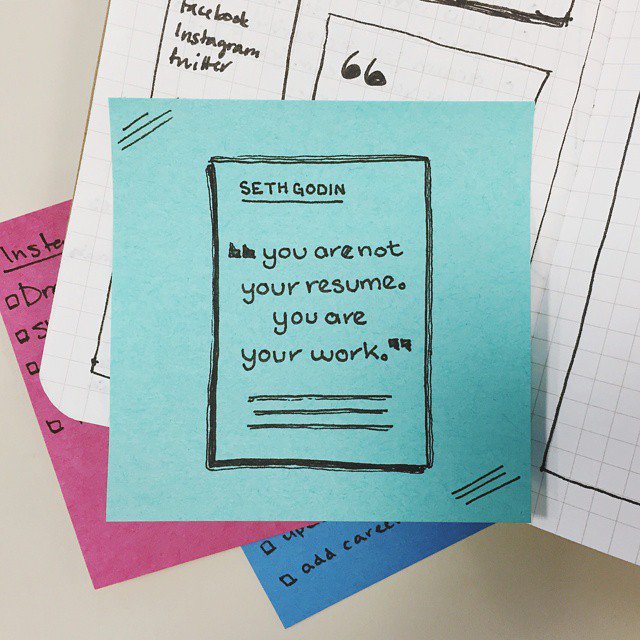 facebook
Instagram
twitter
“
SETH GODIN
“ you are not
your resume.
you are
your work. ”
add